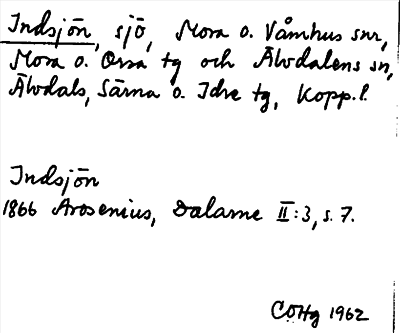 Indsjön, sjö, Mora o. Våmhus snr,
Mora o. Orsa tg och Älvdalens sn,
Älvdals, Särna o. Idre tg, Kopp. l.
Indsjön
1866 Arosenius, Dalarne II:3, s. 7.
COHg 1962